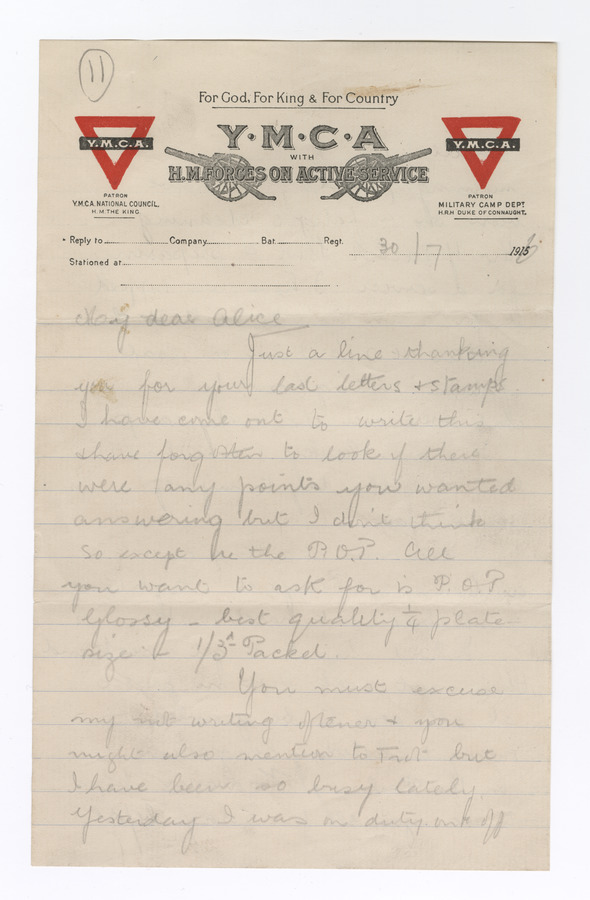 11
For God, For King & For Country
Y·M·C·A
WITH
H.M. FORCES ON ACTIVE SERVICE
Y.M.C.A.
PATRON
Y.M.C.A. NATIONAL COUNCIL.
H.M. THE KING.
Y.M.C.A.
PATRON
MILITARY CAMP DEPT.
H.R.H DUKE OF CONNAUGHT.
Reply to Company Bat. Regt. 30/7 1916
Stationed at
My dear Alice
Just a line thanking
you for your last letters & stamps.
I have come out to write this
& have forgotten to look if there
were any points you wanted
answering but I don't think
so except re the P.O.P. All
you want to ask for is P.O.P.
Glossy - best quality 1/4 plate
size - 1/3d Packed.
You must excuse
my not writing oftener & you
might also mention to Trot but
I have been so busy lately.
Yesterday I was on duty on & off